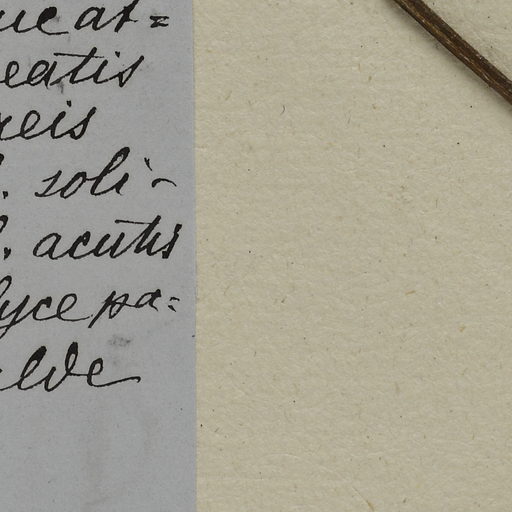 ue at=
eatis
eis
. soli-
. acutis
lyce pa=
elde